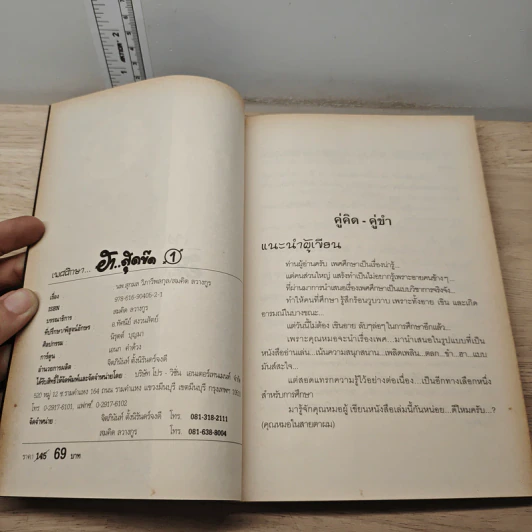 เพศศึกษา... ฮา..สุดขีด 1
เรื่อง นพ.สุกมล วิภาวีพลกุล/สมคิด ลวางกูร
ISBN 978-616-90405-2-1
บรรณาธิการ สมคิด ลวางกูร
ที่ปรึกษา/พิสูจน์อักษร อ.ทัศนีย์ สงวนสัตย์
ศิลปกรรม นิรุตต์ บุญมา
การ์ตูน เอนก คำด้วง
อำนวยการผลิต จิตภินันท์ ตั้งนิรันดร์จงดี
ได้รับสิทธิ์ให้จัดพิมพ์และจัดจำหน่ายโดย บริษัท โปร - วิชั่น เอนเตอร์เทนเมนท์ จำกัด
520 หมู่ 12 ซ.รามคำแหง 164 ถนน รามคำแหง แขวงมีนบุรี เขตมีนบุรี กรุงเทพฯ
โทร. 0-2917-8101, แฟกซ์. 0-2917-8102
จัดจำหน่าย จิตภินันท์ ตั้งนิรันดร์จงดี โทร. 081-318-2111
สมคิด ลวางกูร โทร. 081-638-9004
ราคา 145 69 บาท
คู่คิด - คู่ขำ
แนะนำผู้เขียน
ท่านผู้อ่านครับ เพศศึกษาเป็นเรื่องน่ารู้...
แต่คนส่วนใหญ่ แสร้งทำเป็นไม่อยากรู้เพราะอายคนข้างๆ...
ที่ผ่านมาการนำเสนอเรื่องเพศศึกษาเป็นแบบวิชาการจริงจัง...
ทำให้คนที่ศึกษา รู้สึกร้อนวูบวาบ เพราะทั้งอาย เขิน และเกิด
อารมณ์ในบางขณะ...
แต่วันนี้ไม่ต้อง เขินอาย ลับๆล่อๆ ในการศึกษาอีกแล้ว...
เพราะคุณหมอจะนำเรื่องเพศ...มานำเสนอในรูปแบบที่เป็น
หนังสืออ่านเล่น...เน้นความสนุกสนาน...เพลิดเพลิน...ตลก...ขำ...ฮา...แบบ
มันส์สะใจ...
แต่สอดแทรกความรู้ไว้อย่างต่อเนื่อง...เป็นอีกทางเลือกหนึ่ง
สำหรับการศึกษา
มารู้จักคุณหมอผู้ เขียนหนังสือเล่มนี้กันหน่อย...ดีไหมครับ...?
(คุณหมอในสายตาผม)